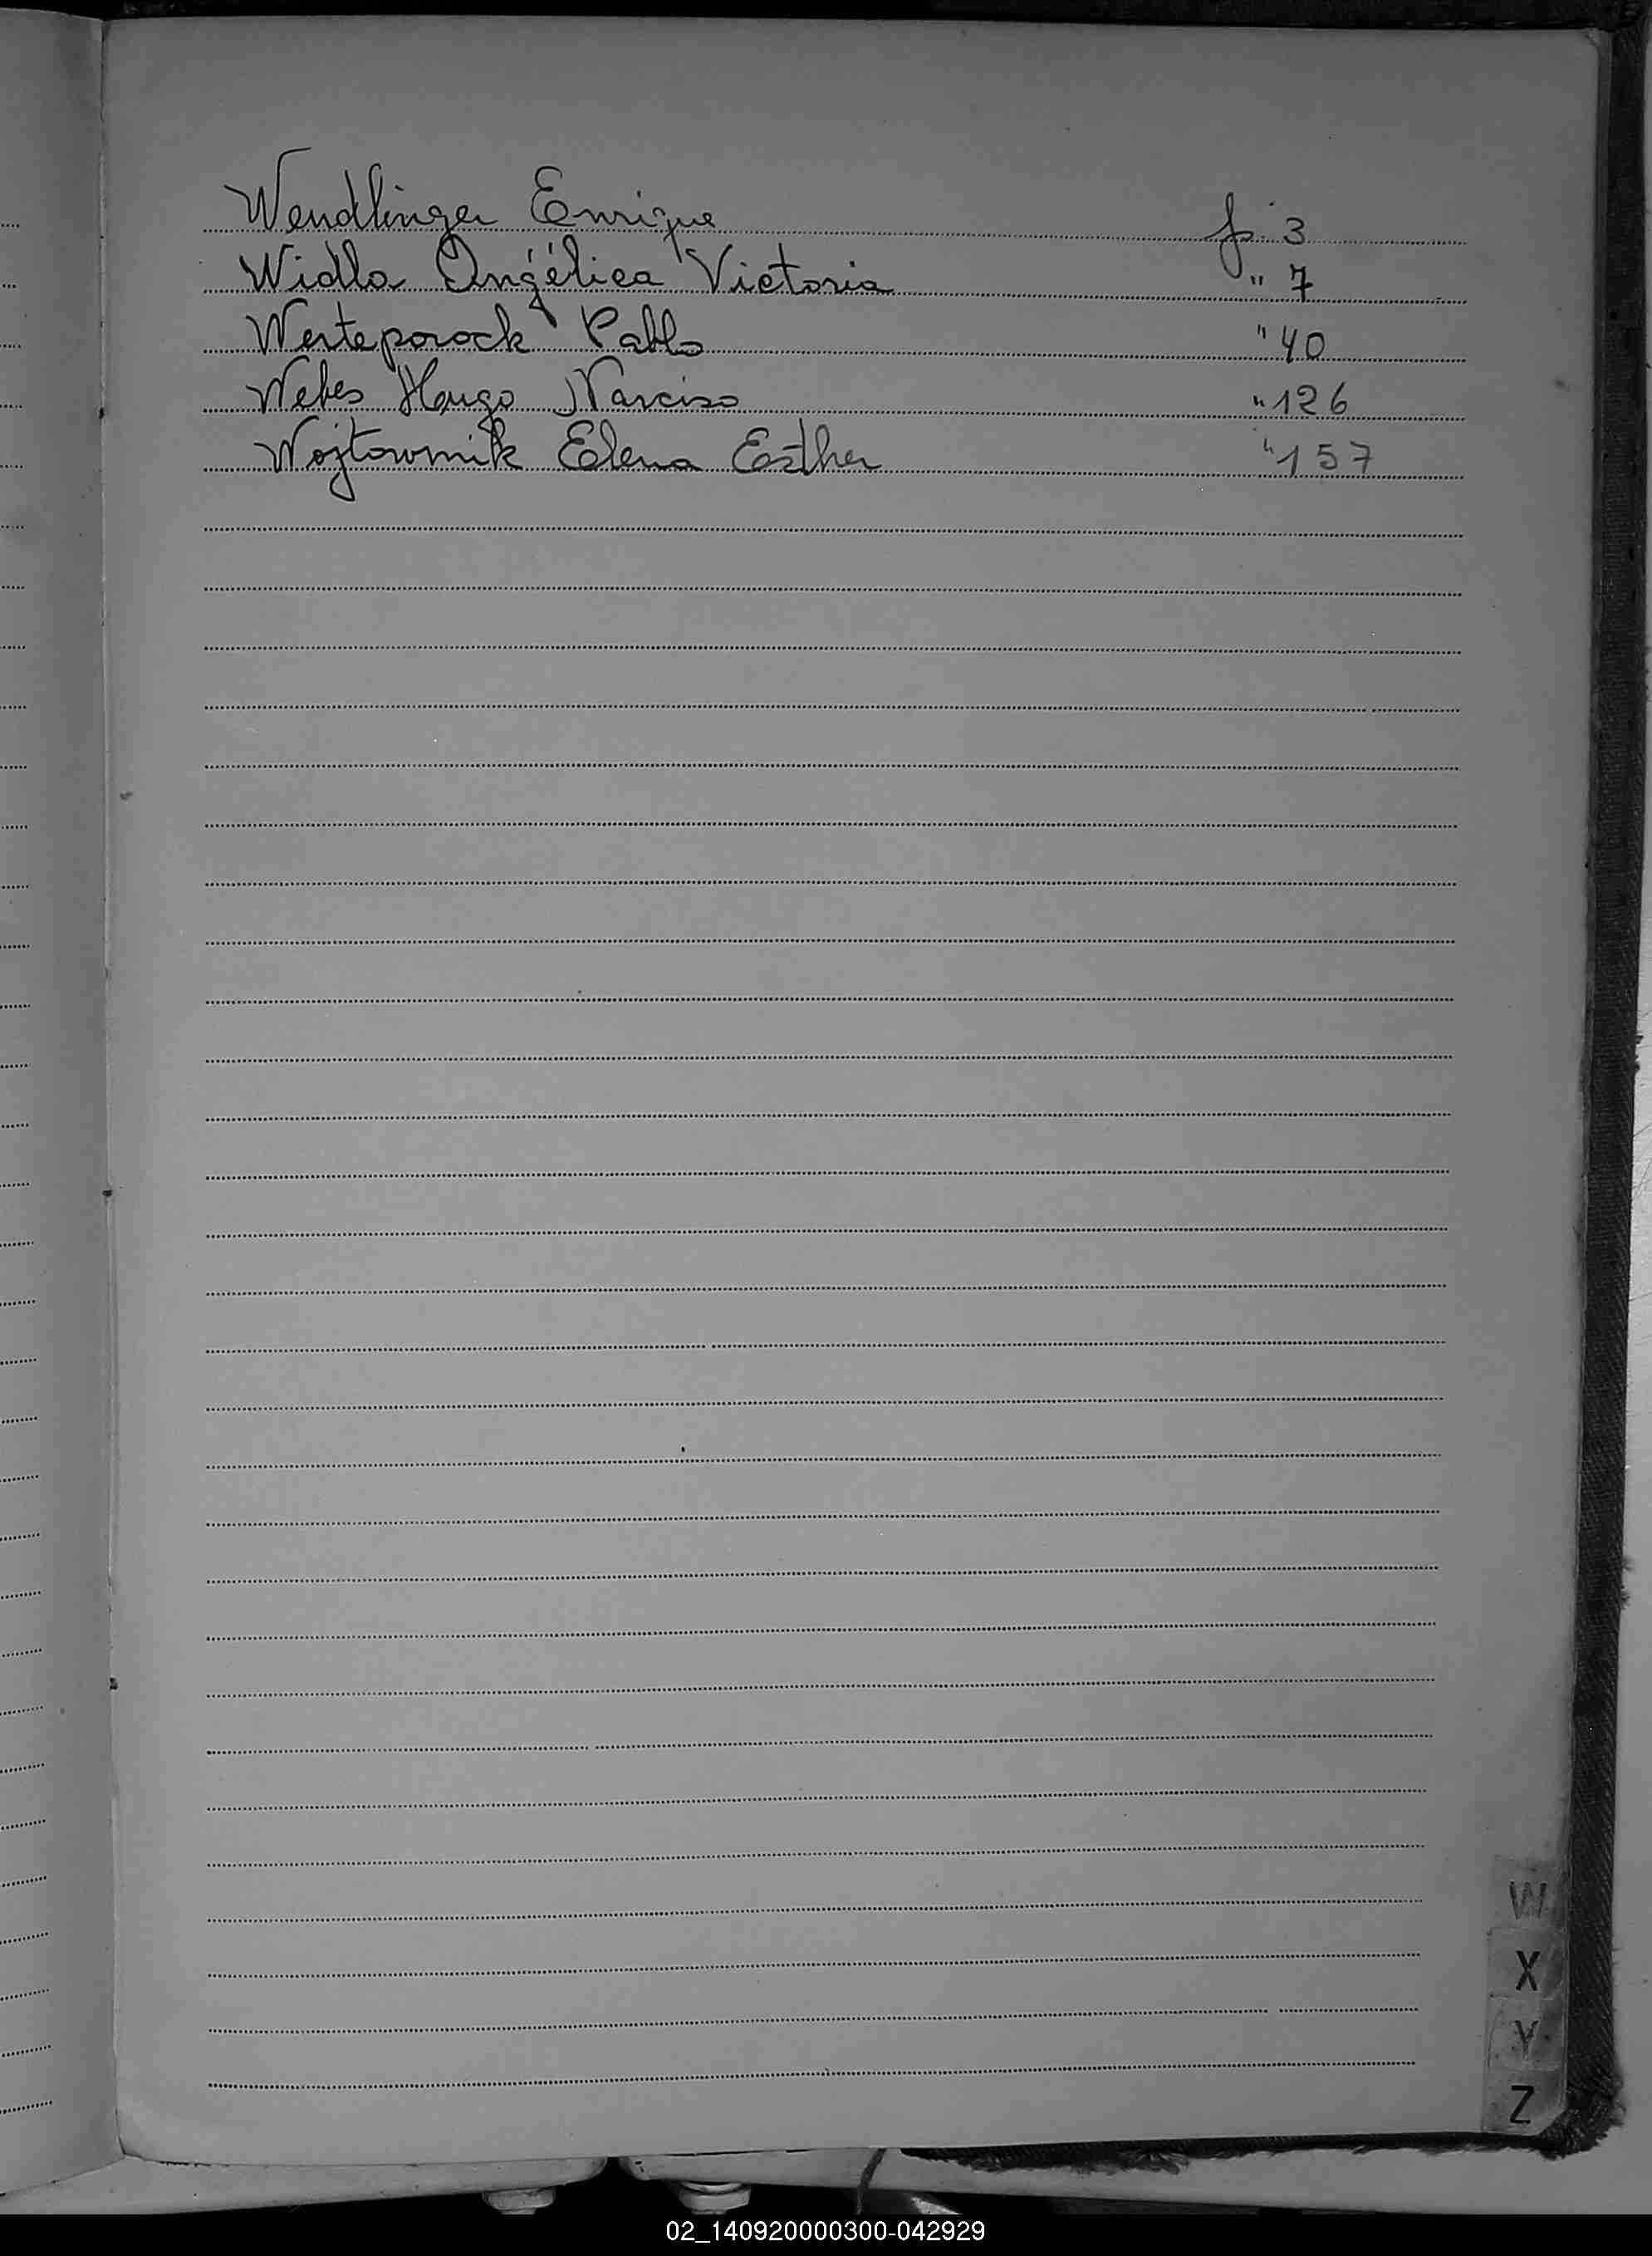 Wendlinger Enrique f. 3
Widla Angélica Victoria " 7
Werteporock Pablo " 40
Weber Hugo Narciso " 126
Wojtowmik Elena Esther " 157
W
X
Y
Z
02_140920000300-042929